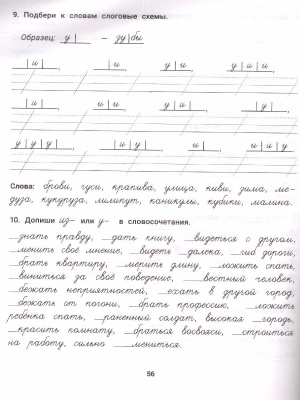 9. Подбери к словам слоговые схемы.
Образец: у| – зу|бы
|и|, |и, у|и, у|и|и,
|и|, и|и, у|и, |у|,
у|у|у|, и|у|, и, и|и|у
Слова: брови, гуси, крапива, улица, киви, зима, ме-
дуза, кукуруза, лилипут, каникулы, кубики, малина.
10. Допиши из- или у- в словосочетания.
__знать правду, __дать книгу, __видеться с другом,
__менить своё мнение, __видеть далека, __гиб дороги,
__брать квартиру, __мерить длину, __ложить спать,
__виниться за своё поведение, __вестный человек,
__бежать неприятностей, __ехать в другой город,
__бежать от погони, __брать профессию, __ложить
ребёнка спать, __раненный солдат, высокая __городь,
__красить комнату, __браться восвояси, __строиться
на работу, сильно __мениться.
56